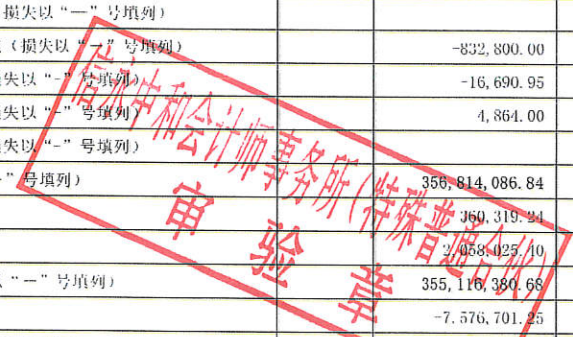 损失以“—”号填列）
（损失以“-”号填列） -832,800.00
失以“-”号填列） -16,690.95
失以“-”号填列） 4,864.00
失以“-”号填列）
”号填列） 356,814,086.84
360,319.24
2,058,025.40
“--”号填列） 355,116,380.68
-7,576,701.25
信永中和会计师事务所(特殊普通合伙)
审验章